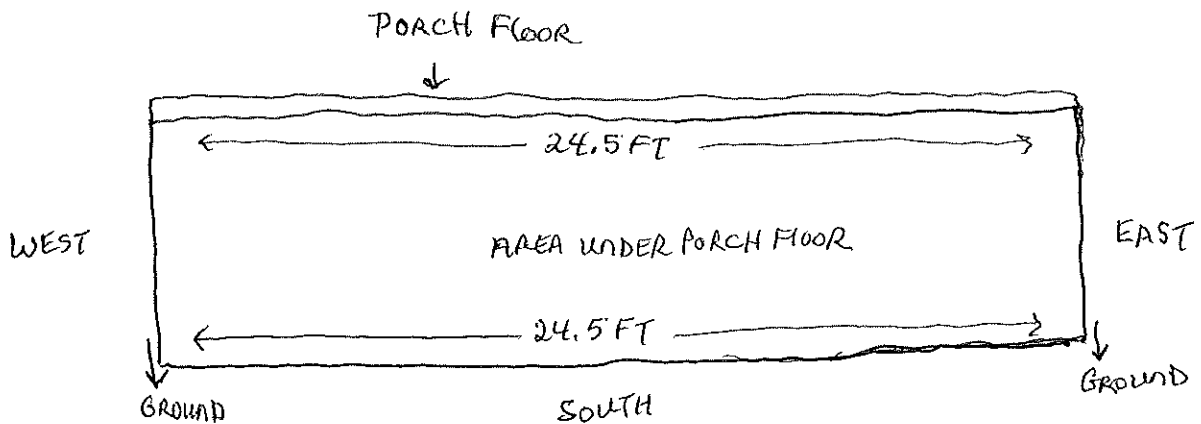 PORCH FLOOR
24.5 FT
WEST
AREA UNDER PORCH FLOOR
EAST
24.5 FT
GROUND
SOUTH
GROUND